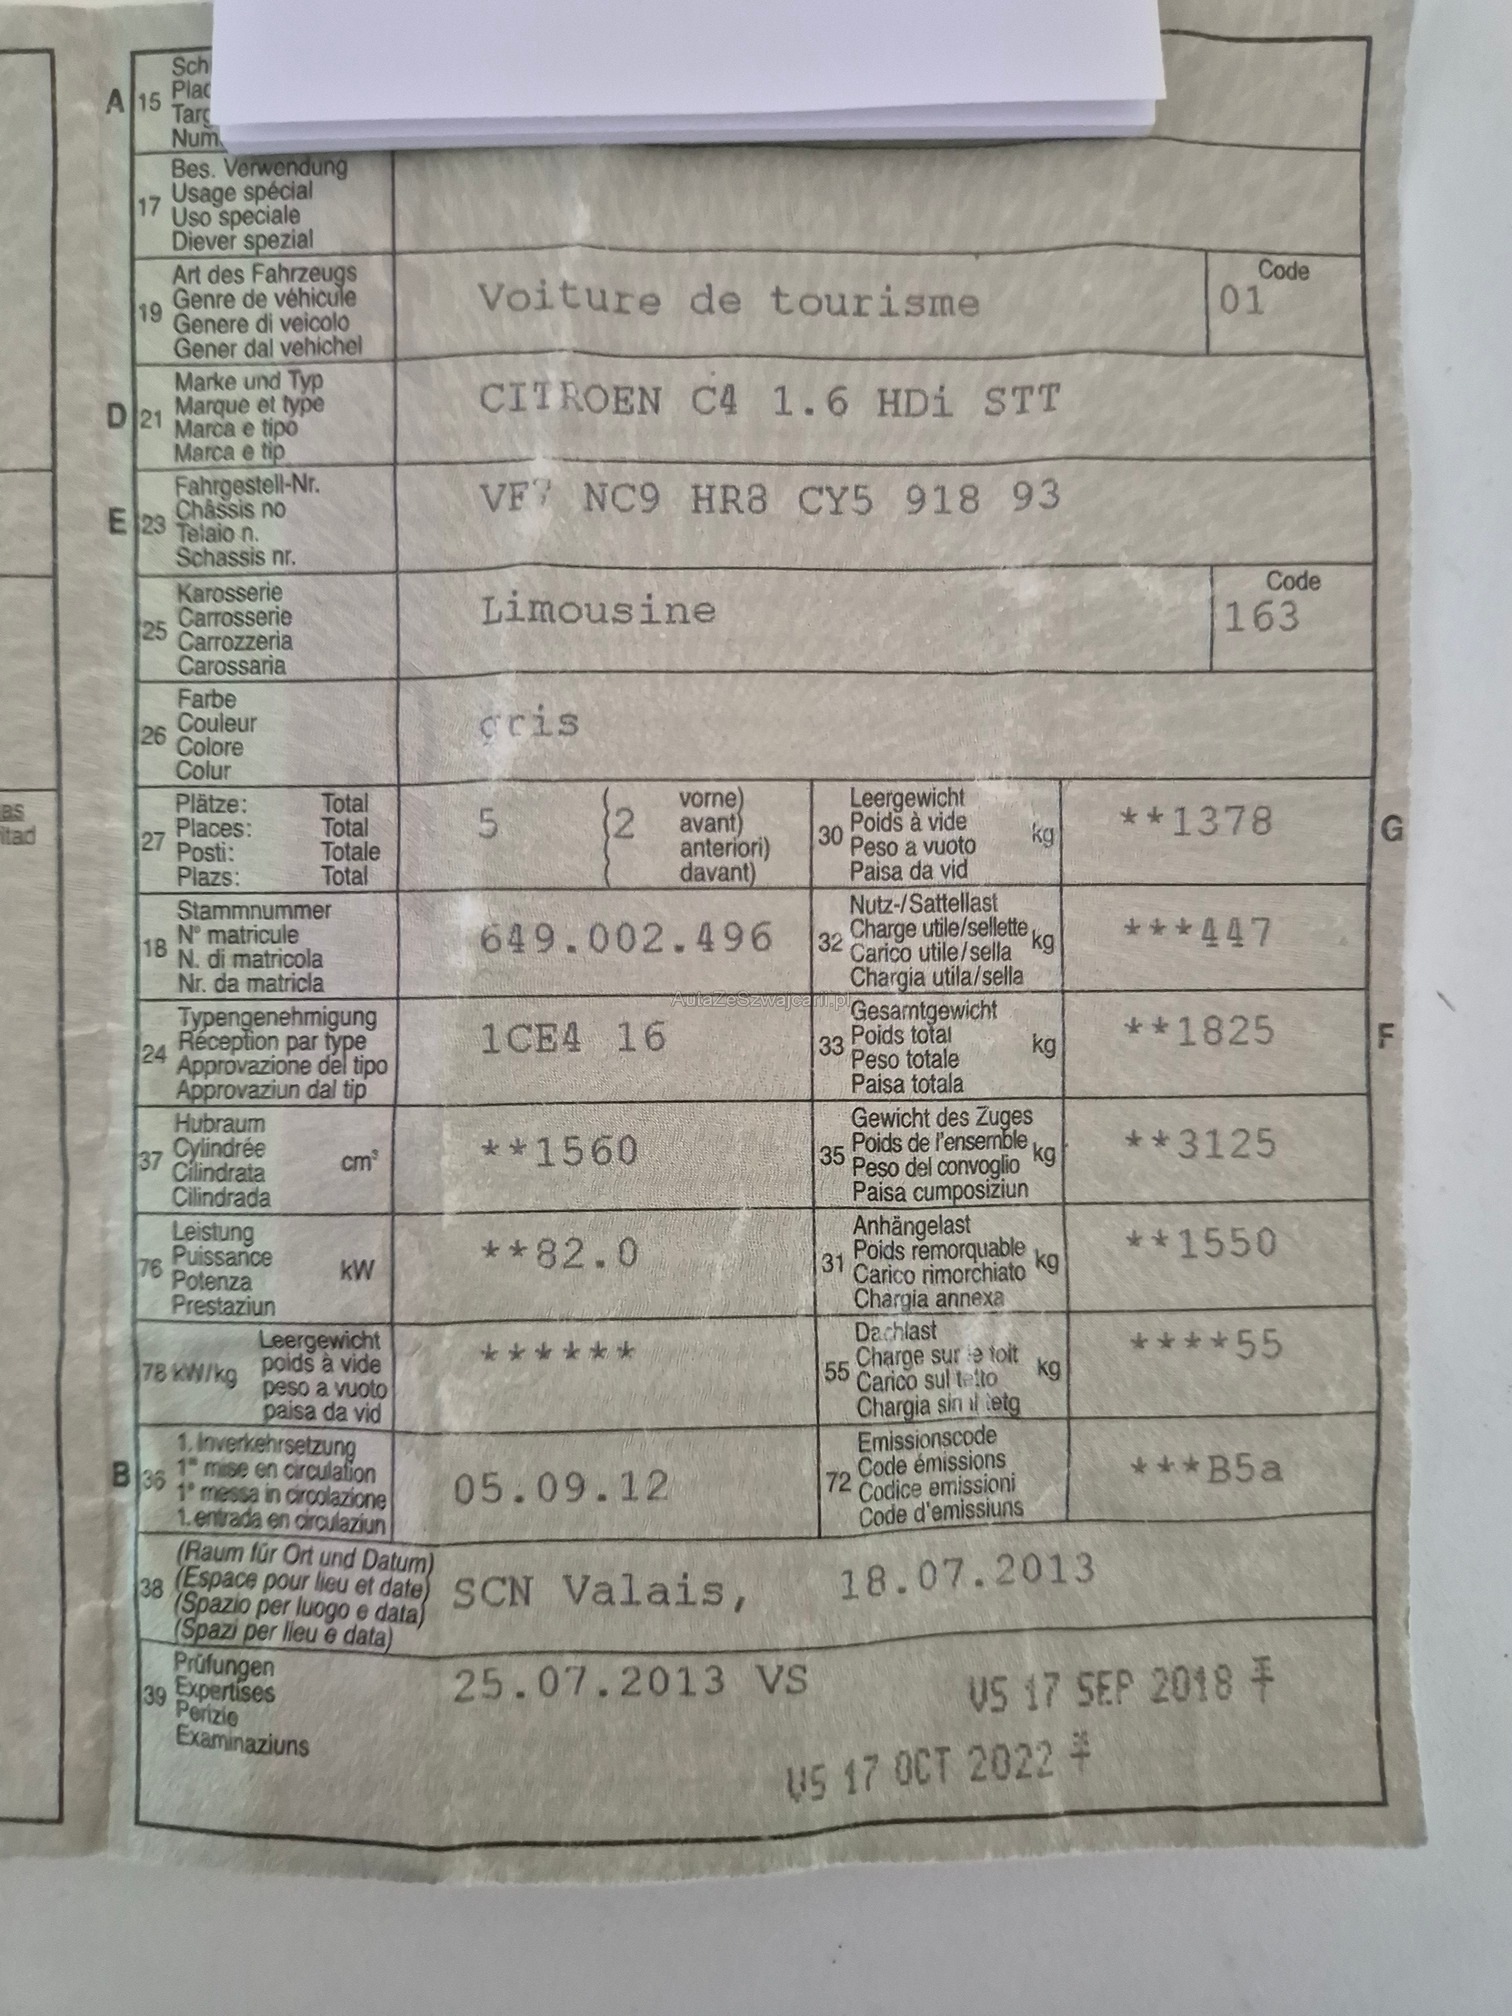 A 15 Sch
Plac
Targ
Num.
17 Bes. Verwendung
Usage spécial
Uso speciale
Diever spezial
19 Art des Fahrzeugs
Genre de véhicule
Genere di veicolo
Gener dal vehichel
Voiture de tourisme
Code
01
D 21 Marke und Typ
Marque et type
Marca e tipo
Marca e tip
CITROEN C4 1.6 HDi STT
E 23 Fahrgestell-Nr.
Châssis no
Telaio n.
Schassis nr.
VF7 NC9 HR8 CY5 918 93
25 Karosserie
Carrosserie
Carrozzeria
Carossaria
Limousine
Code
163
26 Farbe
Couleur
Colore
Colur
gris
27 Plätze: Total
Places: Total
Posti: Totale
Plazs: Total
5 (2 vorne)
avant)
anteriori)
davant)
30 Leergewicht
Poids à vide kg
Peso a vuoto
Paisa da vid
**1378 G
18 Stammnummer
N° matricule
N. di matricola
Nr. da matricla
649.002.496
32 Nutz-/Sattellast
Charge utile/sellette kg
Carico utile/sella
Chargia utila/sella
***447
AutaZeSzwajcarii.pl
24 Typengenehmigung
Réception par type
Approvazione del tipo
Approvaziun dal tip
1CE4 16
33 Gesamtgewicht
Poids total kg
Peso totale
Paisa totala
**1825 F
37 Hubraum
Cylindrée cm³
Cilindrata
Cilindrada
**1560
35 Gewicht des Zuges
Poids de l'ensemble kg
Peso del convoglio
Paisa cumposiziun
**3125
76 Leistung
Puissance kW
Potenza
Prestaziun
**82.0
31 Anhängelast
Poids remorquable kg
Carico rimorchiato
Chargia annexa
**1550
78 kW/kg Leergewicht
poids à vide
peso a vuoto
paisa da vid
******
55 Dachlast
Charge sur le toit kg
Carico sul tetto
Chargia sin il tetg
****55
B 36 1. Inverkehrsetzung
1re mise en circulation
1a messa in circolazione
1. entrada en circulaziun
05.09.12
72 Emissionscode
Code émissions
Codice emissioni
Code d'emissiuns
***B5a
38 (Raum für Ort und Datum)
(Espace pour lieu et date)
(Spazio per luogo e data)
(Spazi per lieu e data)
SCN Valais, 18.07.2013
39 Prüfungen
Expertises
Perizie
Examinaziuns
25.07.2013 VS
VS 17 SEP 2018
VS 17 OCT 2022